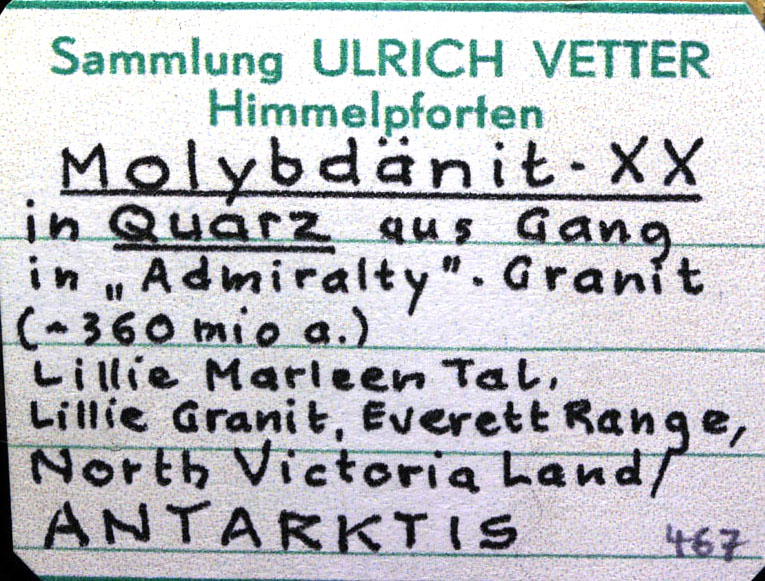 Sammlung ULRICH VETTER
Himmelpforten
Molybdänit-XX
in Quarz aus Gang
in „Admiralty"-Granit
(~360 mio a.)
Lillie Marleen Tal,
Lillie Granit, Everett Range,
North Victoria Land/
ANTARKTIS
467